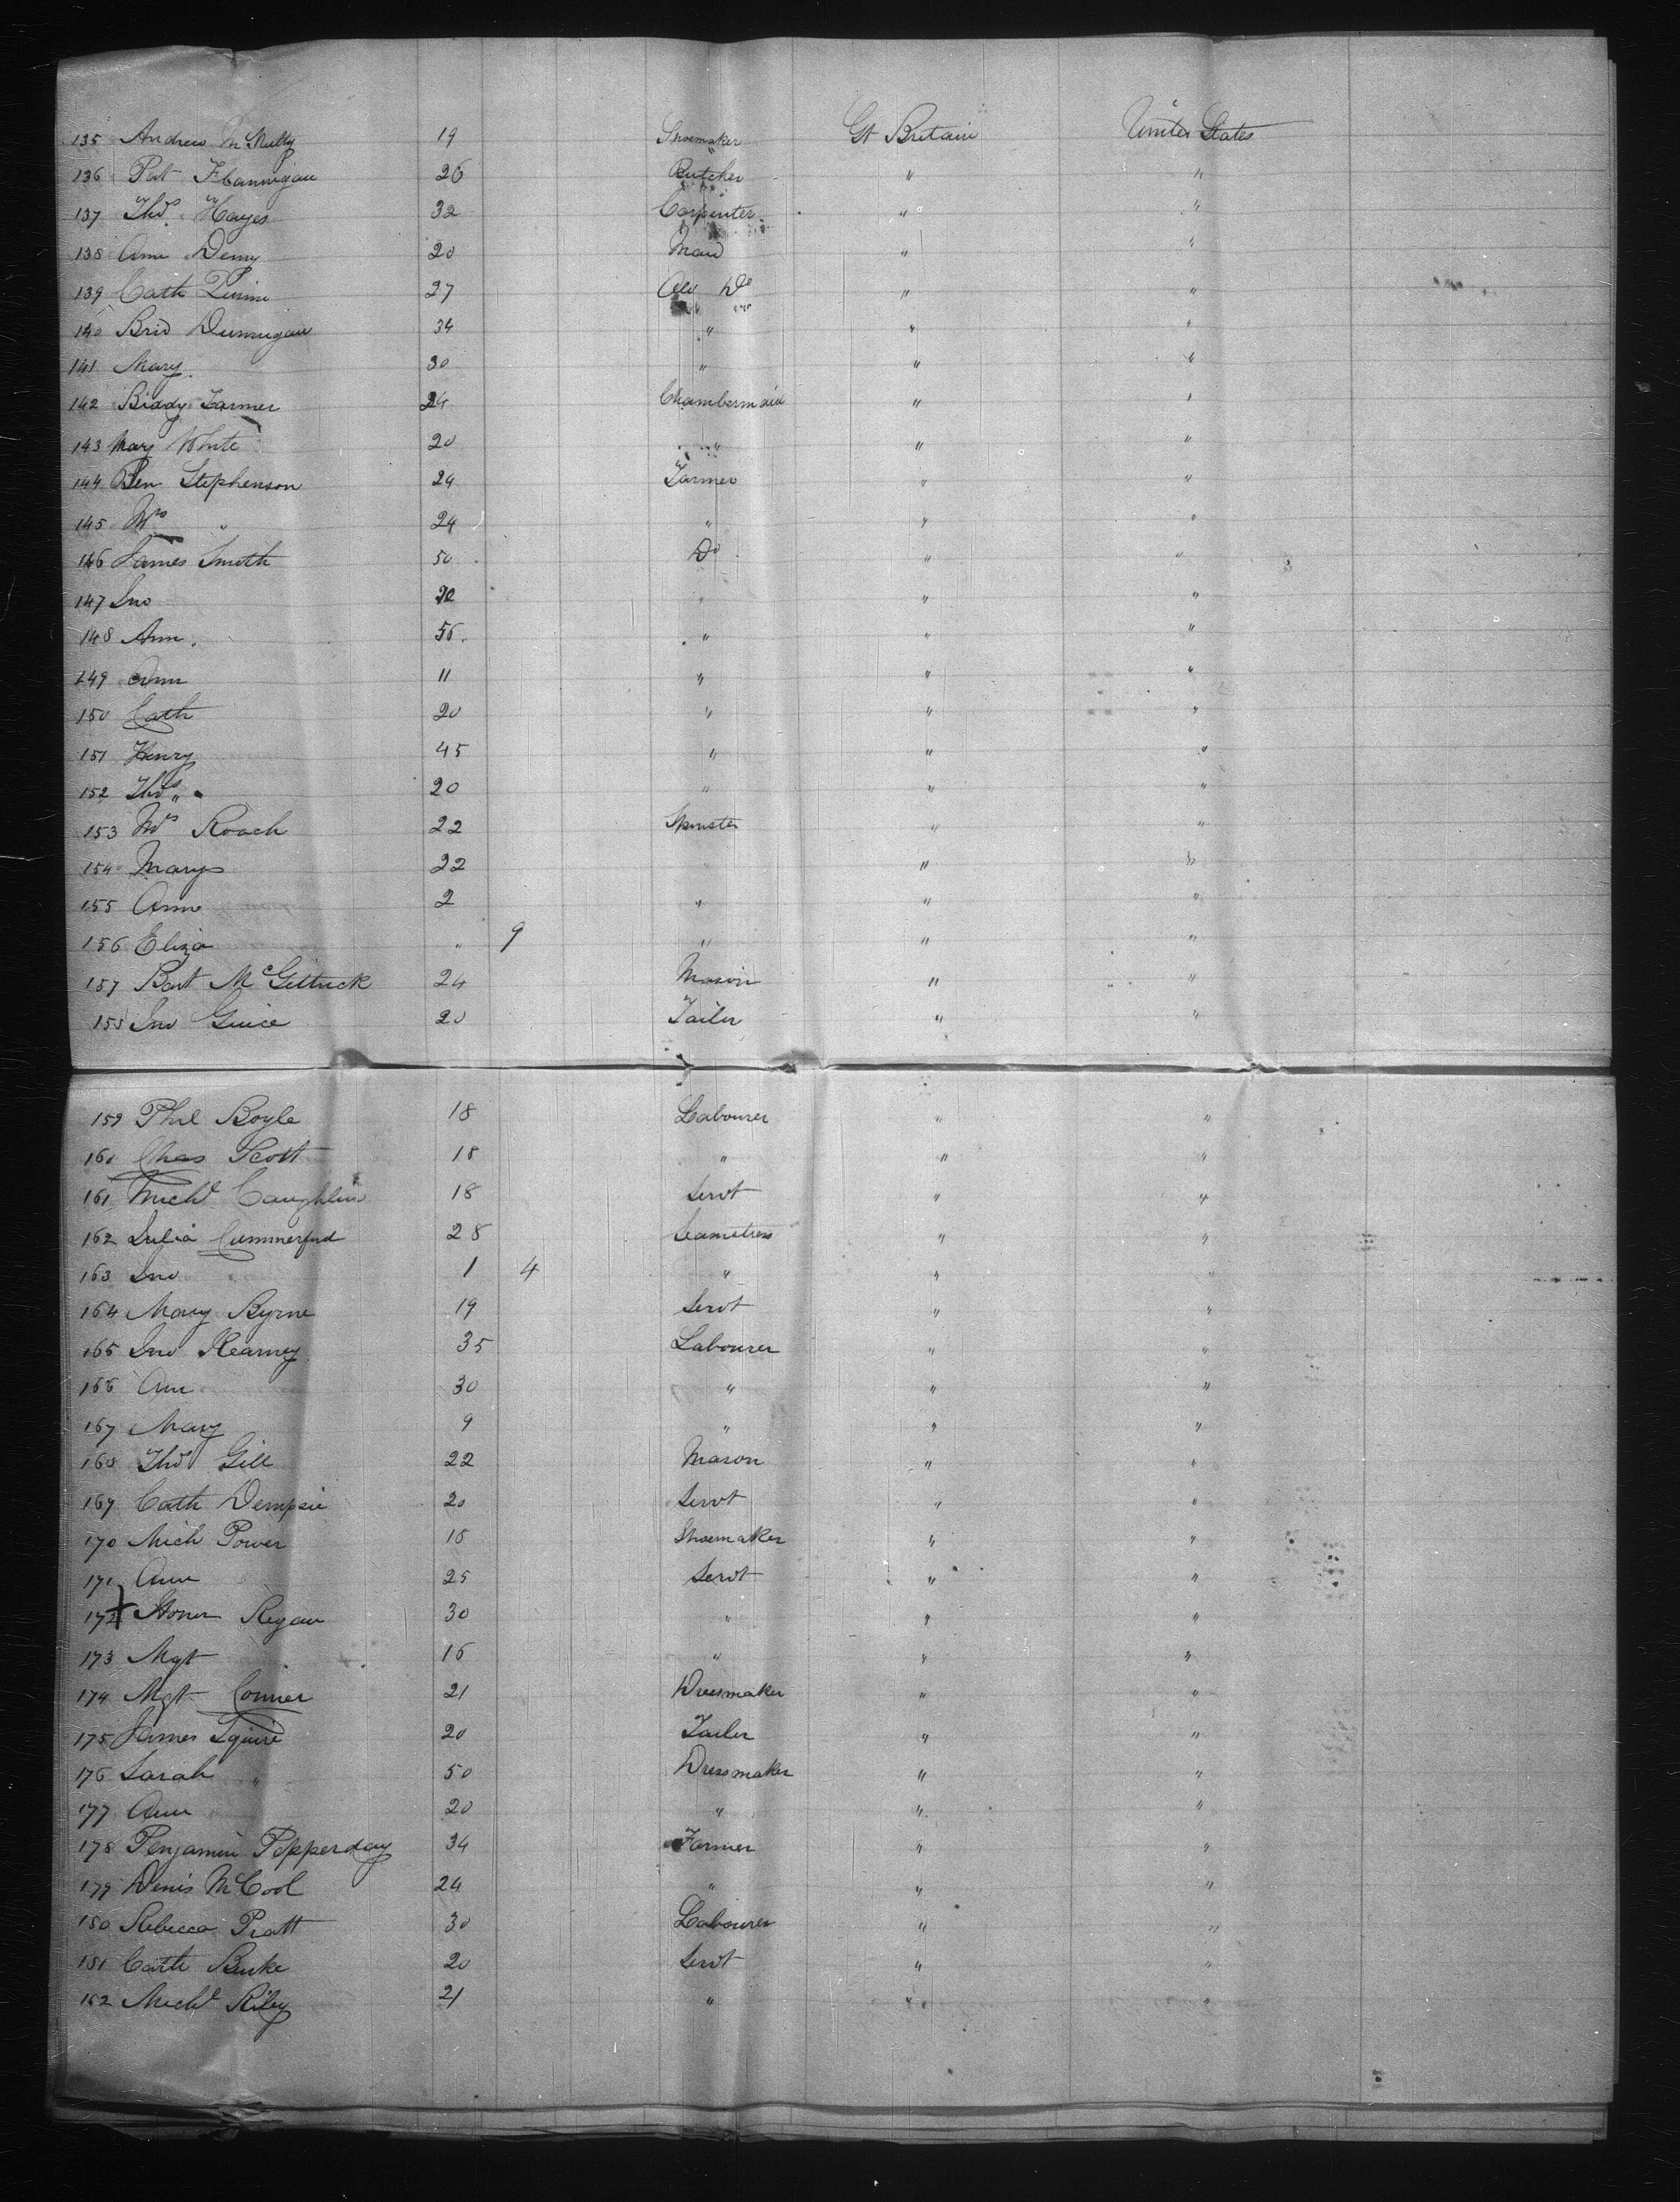 135 Andrew McNulty 19 Shoemaker Gt Britain United States
136 Pat Flannigan 26 Butcher " "
137 Thos Hayes 32 Carpenter " "
138 Ann Deny 20 Maid " "
139 Cath 27 Old Do " "
140 Brid Dunnigan 34 " " "
141 Mary 30 " " "
142 Biddy Farmer 24 Chambermaid " "
143 Mary White 20 " " "
144 Ben Stephenson 24 Farmer " "
145 Mrs " 24 " " "
146 James Smith 50 Do " "
147 Jno " " "
148 Ann 56 " " "
149 Ann 11 " " "
150 Cath 20 " " "
151 Henry 45 " " "
152 Thos " 20 " " "
153 Mrs Roach 22 Spinster " "
154 Mary 22 " "
155 Ann 2 " " "
156 Eliza " 9 " " "
157 Bart McGittrick 24 Mason " "
158 Jno Guice 20 Tailer " "
159 Phil Boyle 18 Labourer " "
160 Chas Scott 18 " " "
161 Michl Caughlin 18 Servt " "
162 Julia Cummerfird 28 Seamstress " "
163 Jno 1 4 " " "
164 Mary Byrne 19 Servt " "
165 Jno Kearney 35 Labourer " "
166 Ann 30 " " "
167 Mary 9 " " "
168 Thos Gill 22 Mason " "
169 Cath Dempsie 20 Servt " "
170 Mich Power 18 Shoemaker " "
171 Ann 25 Servt " "
172 Honer Regan 30 " " "
173 Mgt 16 " " "
174 Mgt Conner 21 Dressmaker " "
175 James Squire 20 Tailer " "
176 Sarah " 50 Dressmaker " "
177 Ann 20 " " "
178 Benjamin Pepperday 34 Farmer " "
179 Denis McCool 24 " " "
180 Rebecca Pratt 30 Labourer " "
181 Cath Burke 20 Servt " "
182 Michl Riley 21 " " "